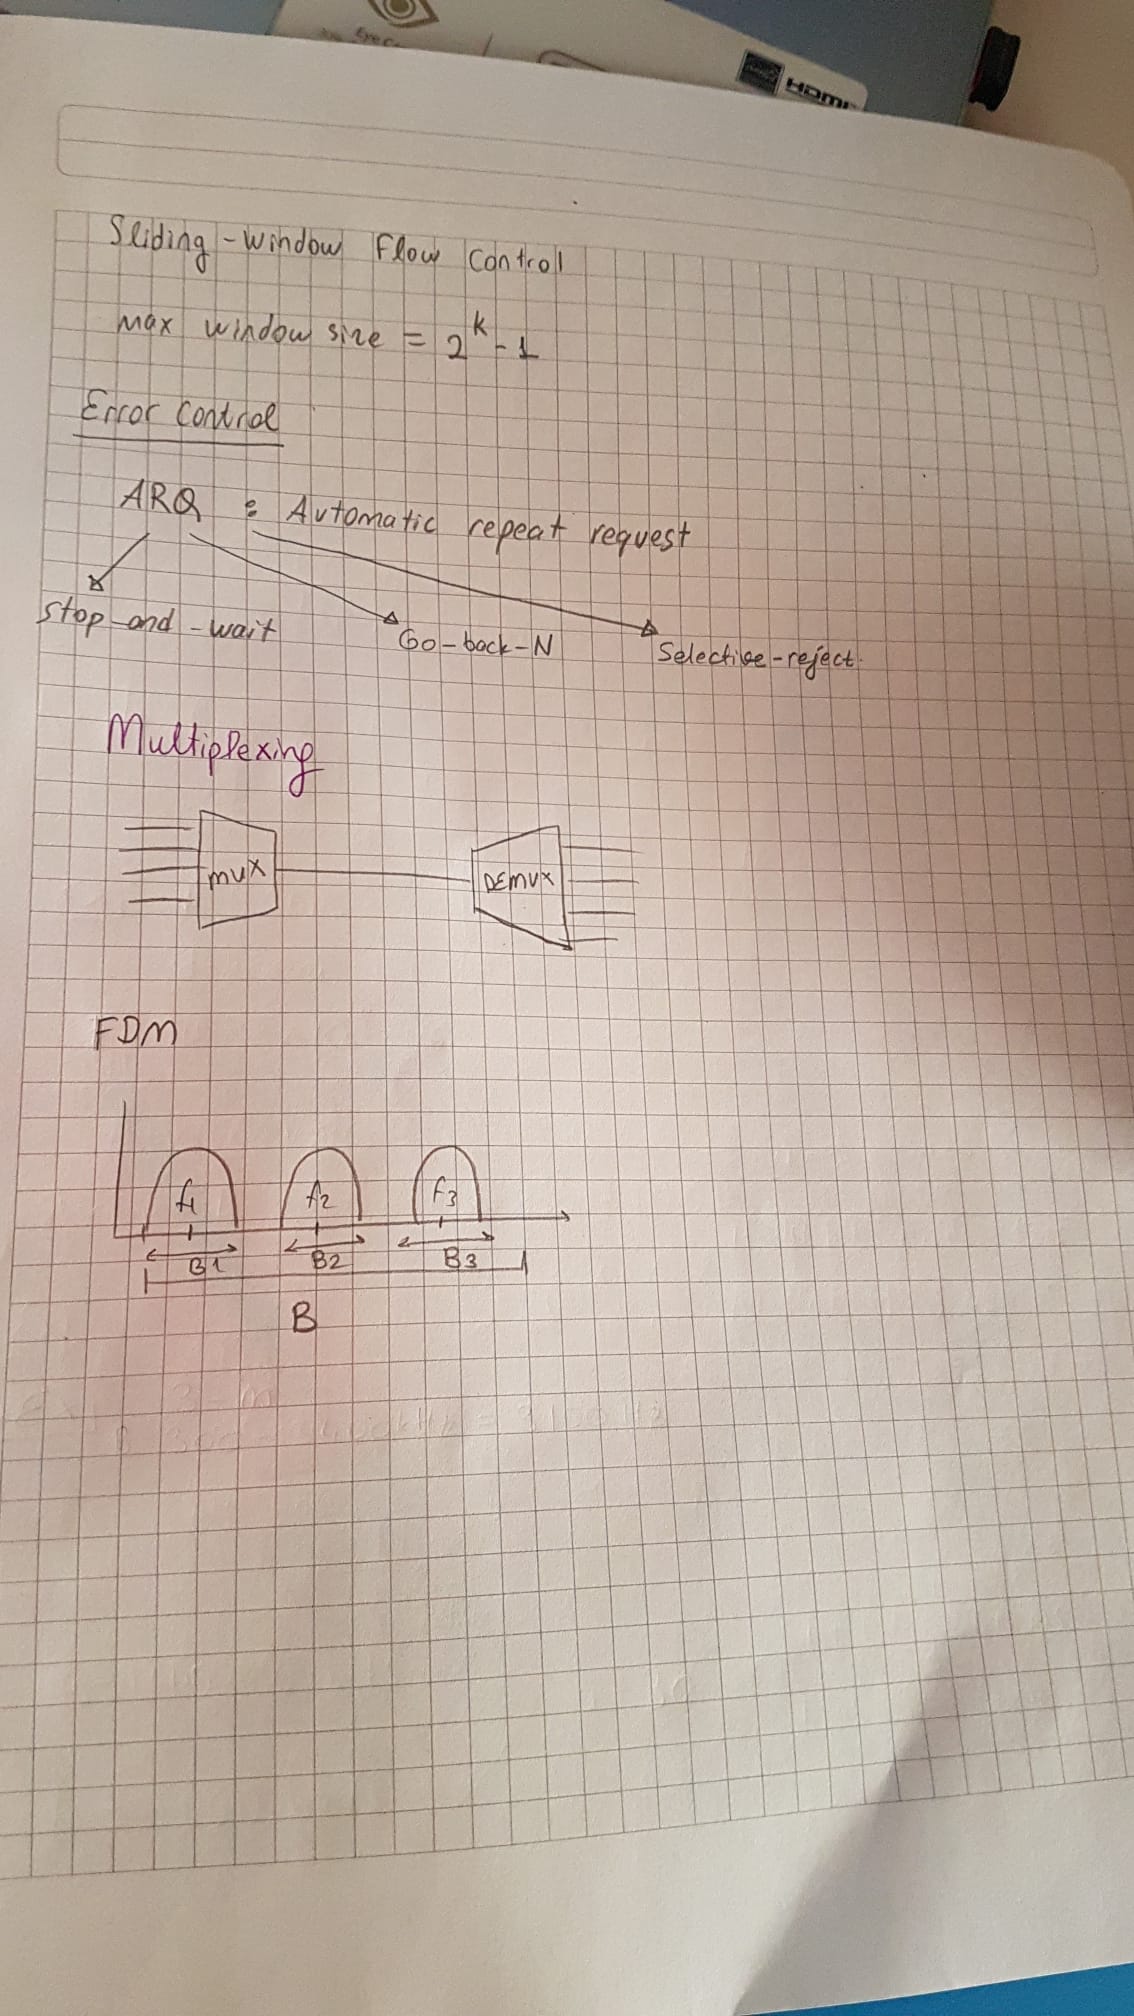 Eye C
HDMI
Sliding-window Flow Control
max window size = 2^k - 1
Error Control
ARQ : Automatic repeat request
stop-and-wait
Go-back-N
Selective-reject
Multiplexing
mux
DEMUX
FDM
f1 f2 f3
B1 B2 B3
B